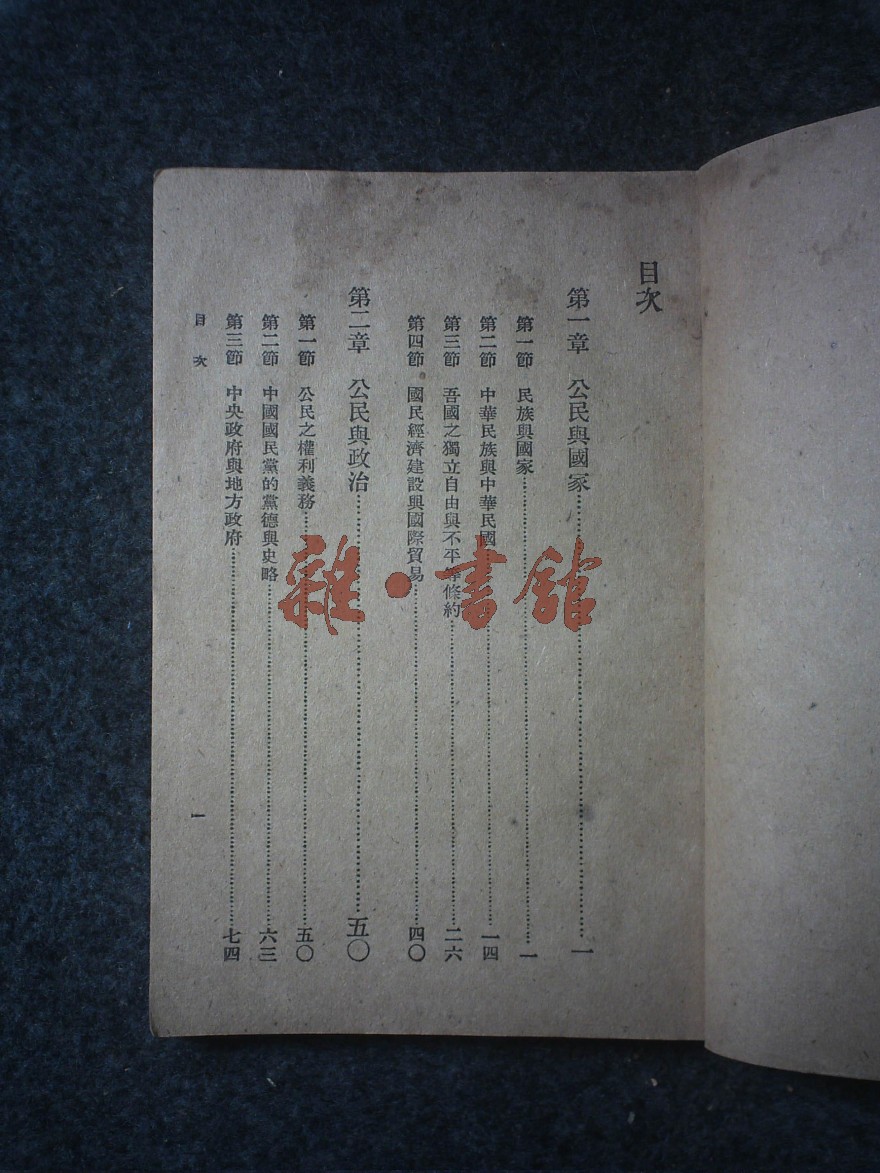 目次
第一章 公民與國家……一
第一節 民族與國家……一
第二節 中華民族與中華民國……一四
第三節 吾國之獨立自由與不平等條約……二六
第四節 國民經濟建設與國際貿易……四〇
第二章 公民與政治……五〇
第一節 公民之權利義務……五〇
第二節 中國國民黨的黨德與史略……六三
第三節 中央政府與地方政府……七四
目次 一
雜·書館